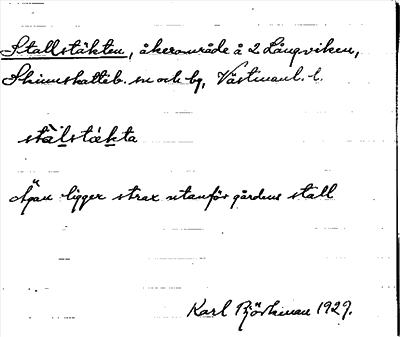 Stallstäkten, åkerområde å 2 Långviken,
Skinnskatteb. sn och by, Västmanl. l.
stálstäkta
Ägan ligger strax utanför gårdens stall
Karl Björkman 1929.